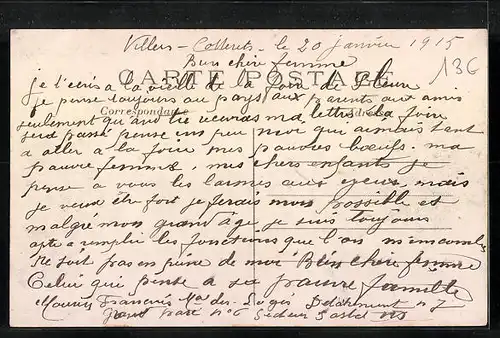 Villers-Cotterets, le 20 janvier 1915
136
Bien chère femme
CARTE POSTALE
je t'écris à la veille de la foire de fleure
je pense toujours au pays aux parents aux amis
Correspondance
Adresse
seulement que quand tu recevras ma lettre la foire
sera passé pense un peu moi qui aimais tant
a aller a la foire mes pauvres bœufs. ma
pauvre femme, mes chers enfants je
pense a vous les larmes aux yeux, mais
je veux être fort je ferais mon possible et
malgré mon grand âge je suis toujours
apte a remplir les fonctions que l'on
ne soit pas en peine de moi Bien chère femme
Celui qui pense a sa pauvre famille
François des Détachement n 7
Grand Parc n° 6 Secteur Postal